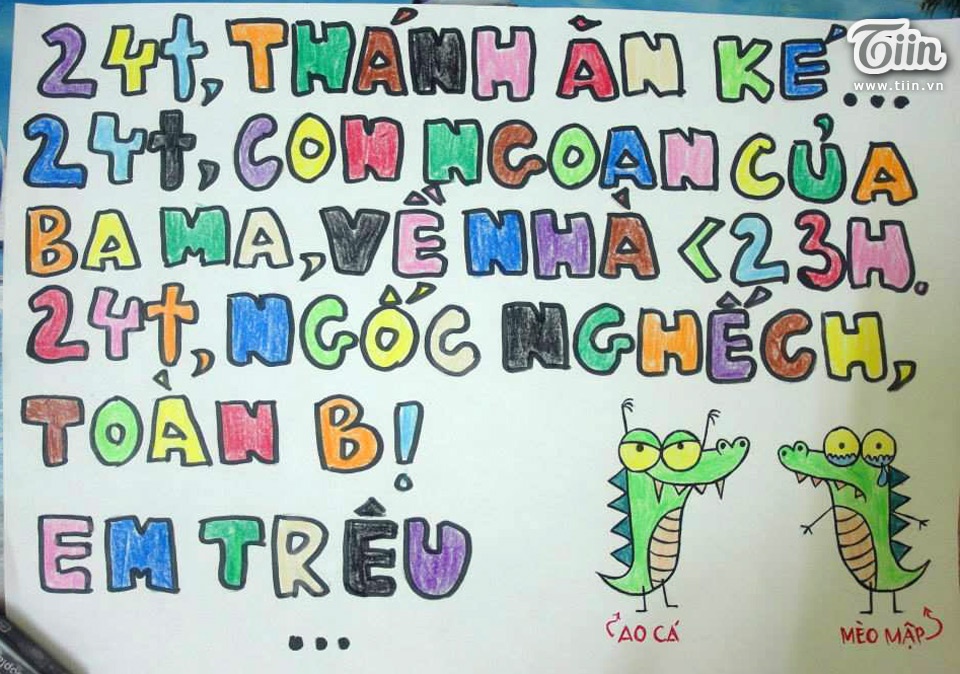 24t, THÁNH ĂN KÉ...
24t, CON NGOAN CỦA
BA MA, VỀ NHÀ <23H.
24t, NGỐC NGHẾCH,
TOÀN B!
EM TRÊU
...
AO CÁ
MÈO MẬP
Tiin
www.tiin.vn